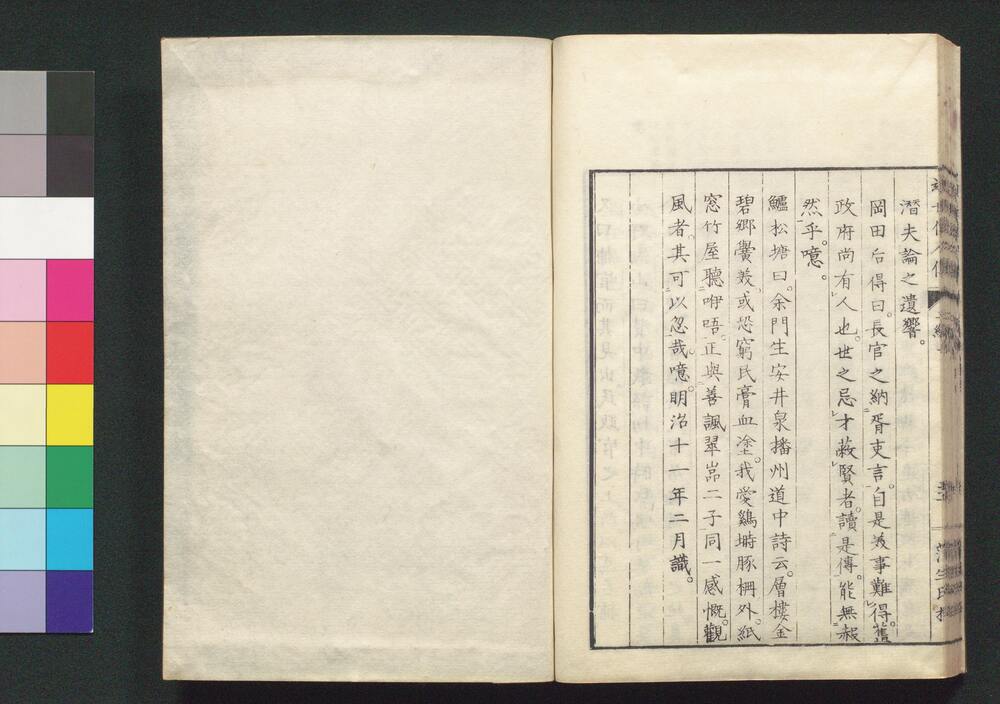 潛夫論之遺響。
岡田后得曰。長官之納胥吏言。自是美事難得。舊
政府尚有人也。世之忌才蔽賢者。讀是傳。能無赧
然乎。噫。
鱸松塘曰。余門生安井泉播州道中詩云。層樓金
碧鄉黌美。或恐窮民膏血塗。我愛鷄塒豚柵外。紙
窓竹屋聽咿唔。正與善諷翠嵓二子同一感慨。觀
風者。其可以忽哉。噫。明治十一年二月識。